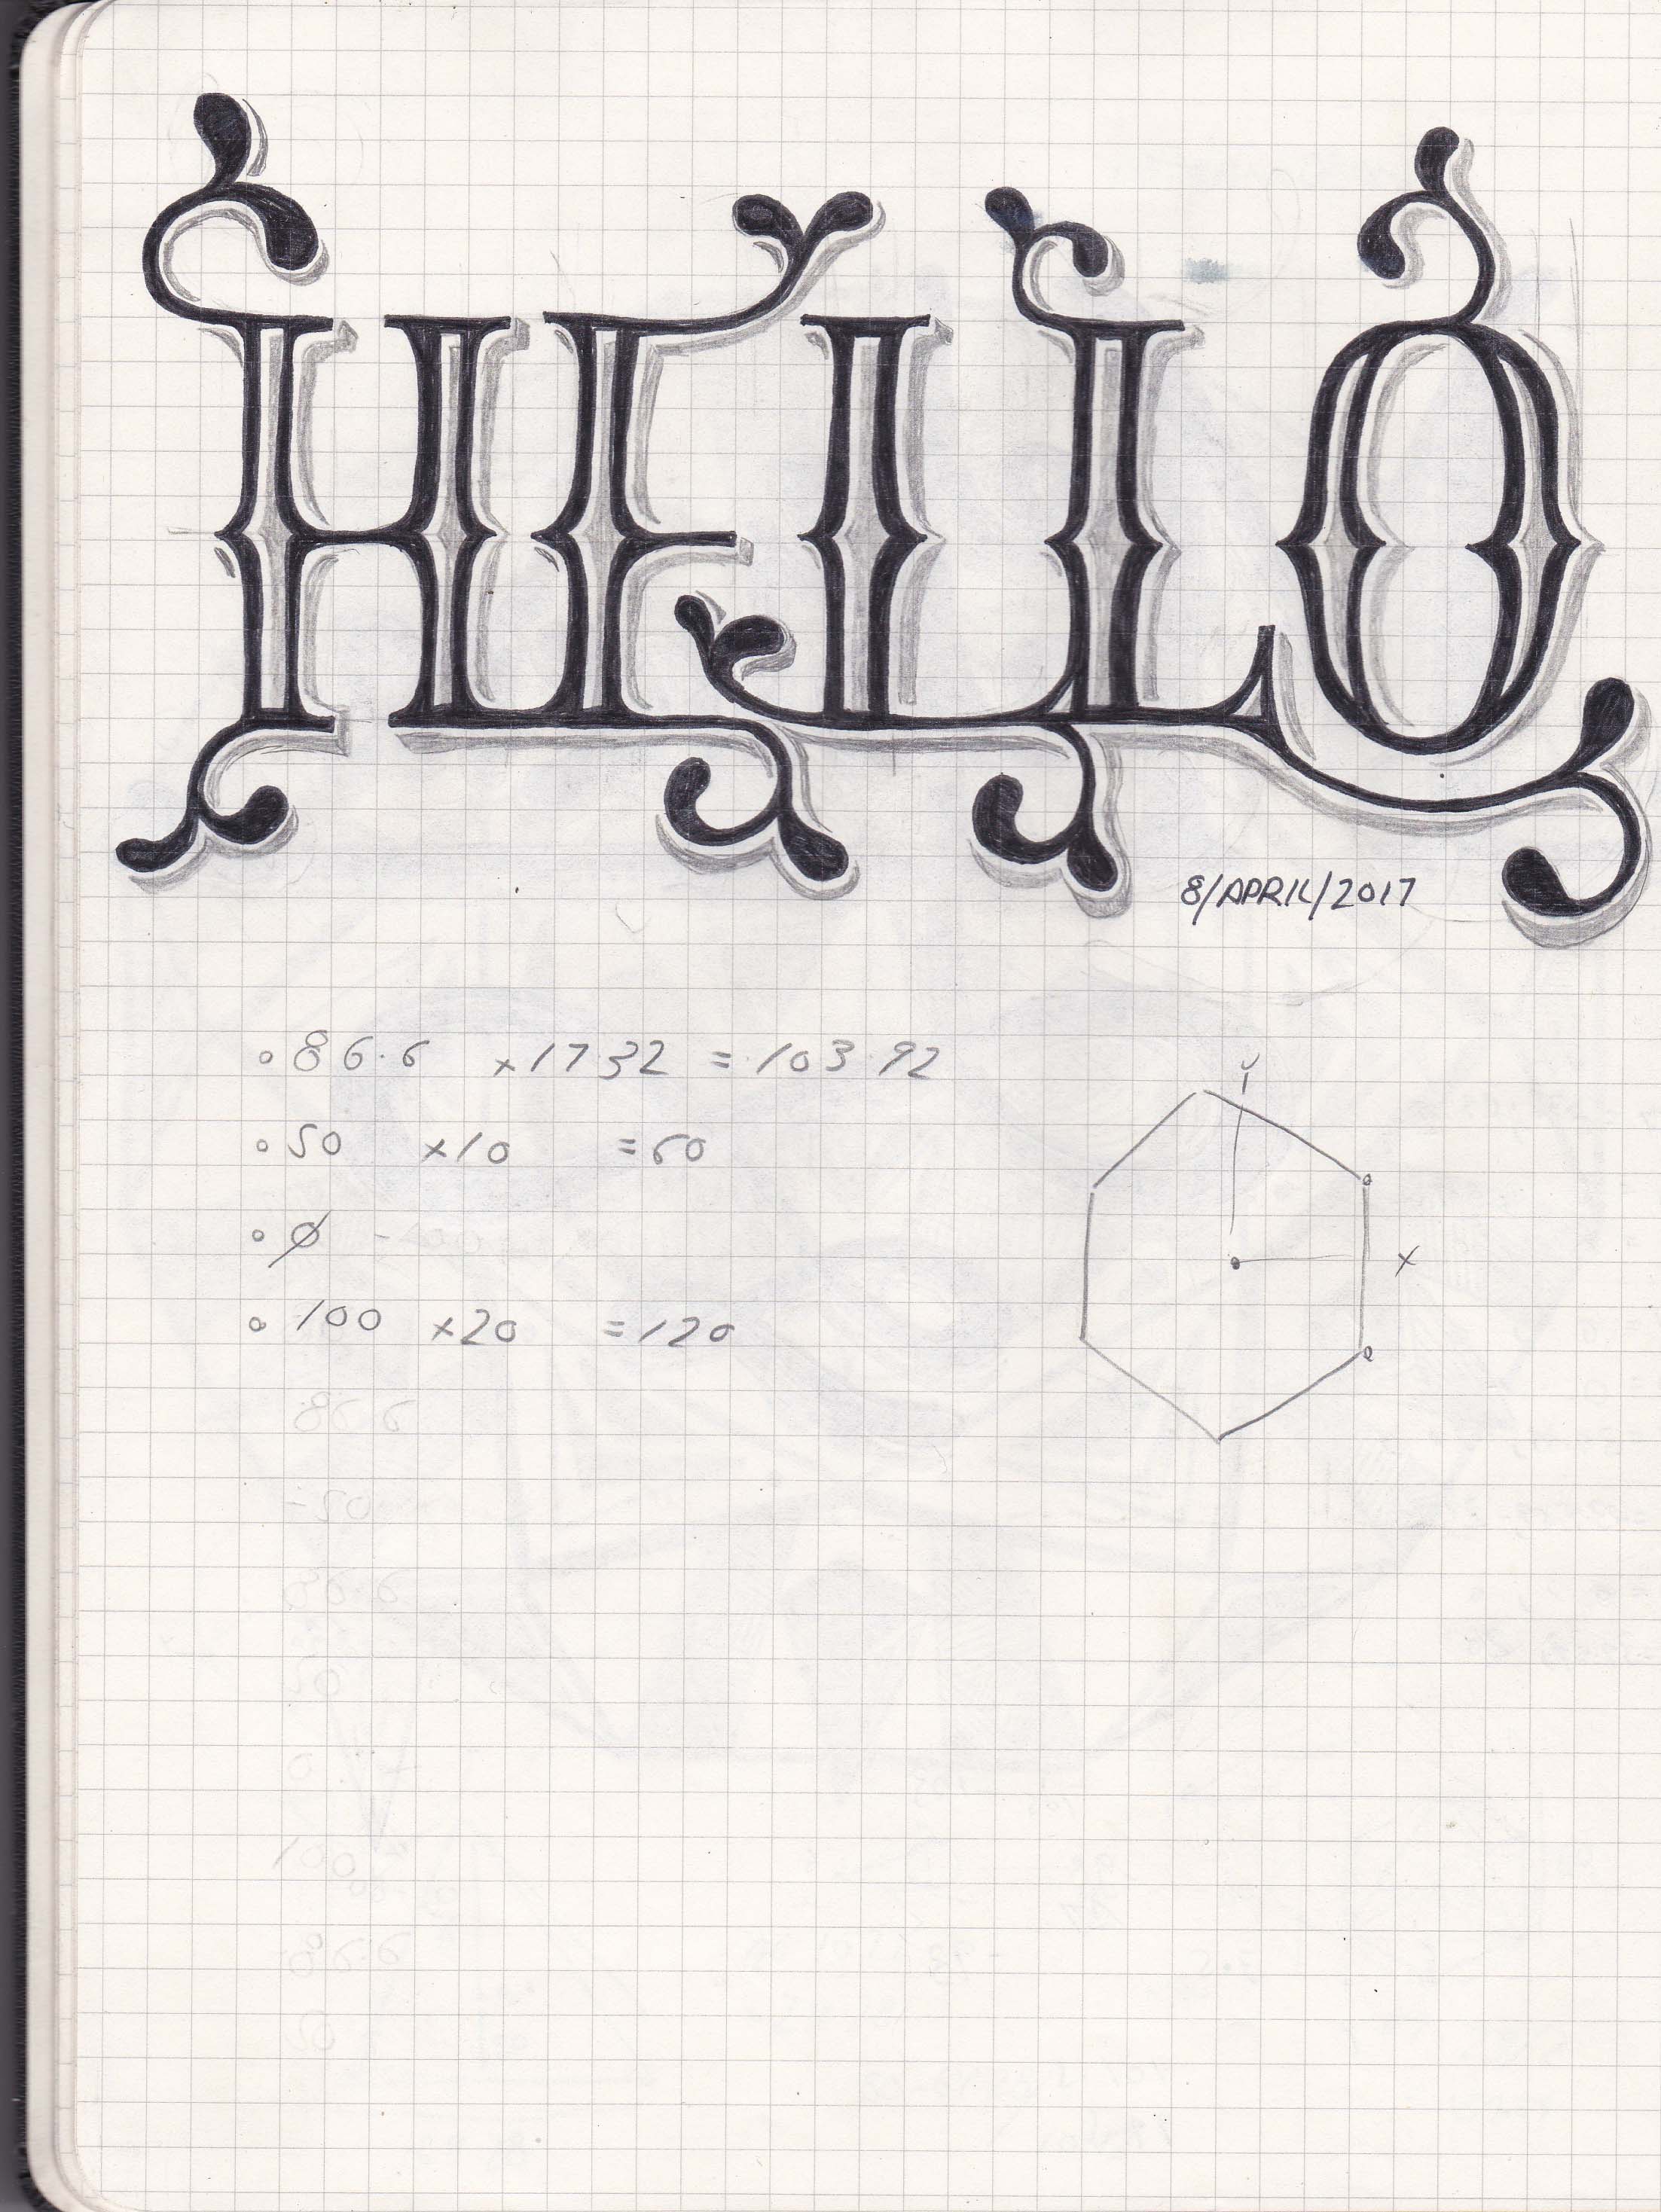 HELLO
8/APRIL/2017
∘ 86.6 ×1732 = 103.92
∘ 50 ×10 = 60
∘ Ø
∘ 100 ×20 = 120
Y
X